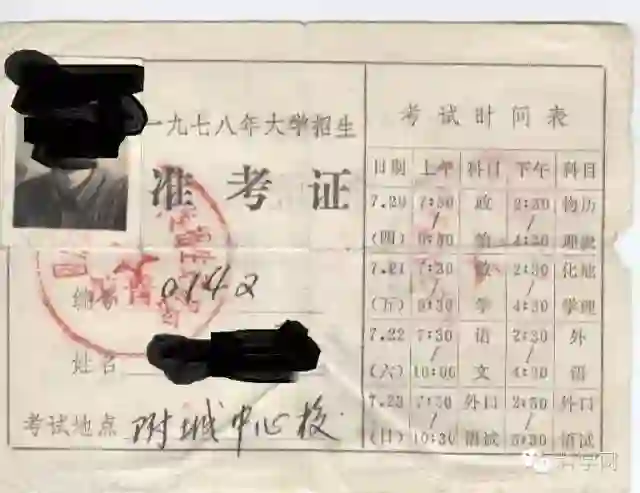 一九七八年大学招生
准考证
编号 0142
姓名
考试地点 附城中心校
考试时间表
日期 上午 科目 下午 科目
7.20 7:30 政 2:30 物历
(四) 治 4:30 理史
7.21 7:30 数 2:30 化地
(五) 9:30 学 4:30 学理
7.22 7:30 语 2:30 外
(六) 10:00 文 4:30 语
7.23 7:30 外口 2:30 外口
(日) 10:30 语试 5:30 语试